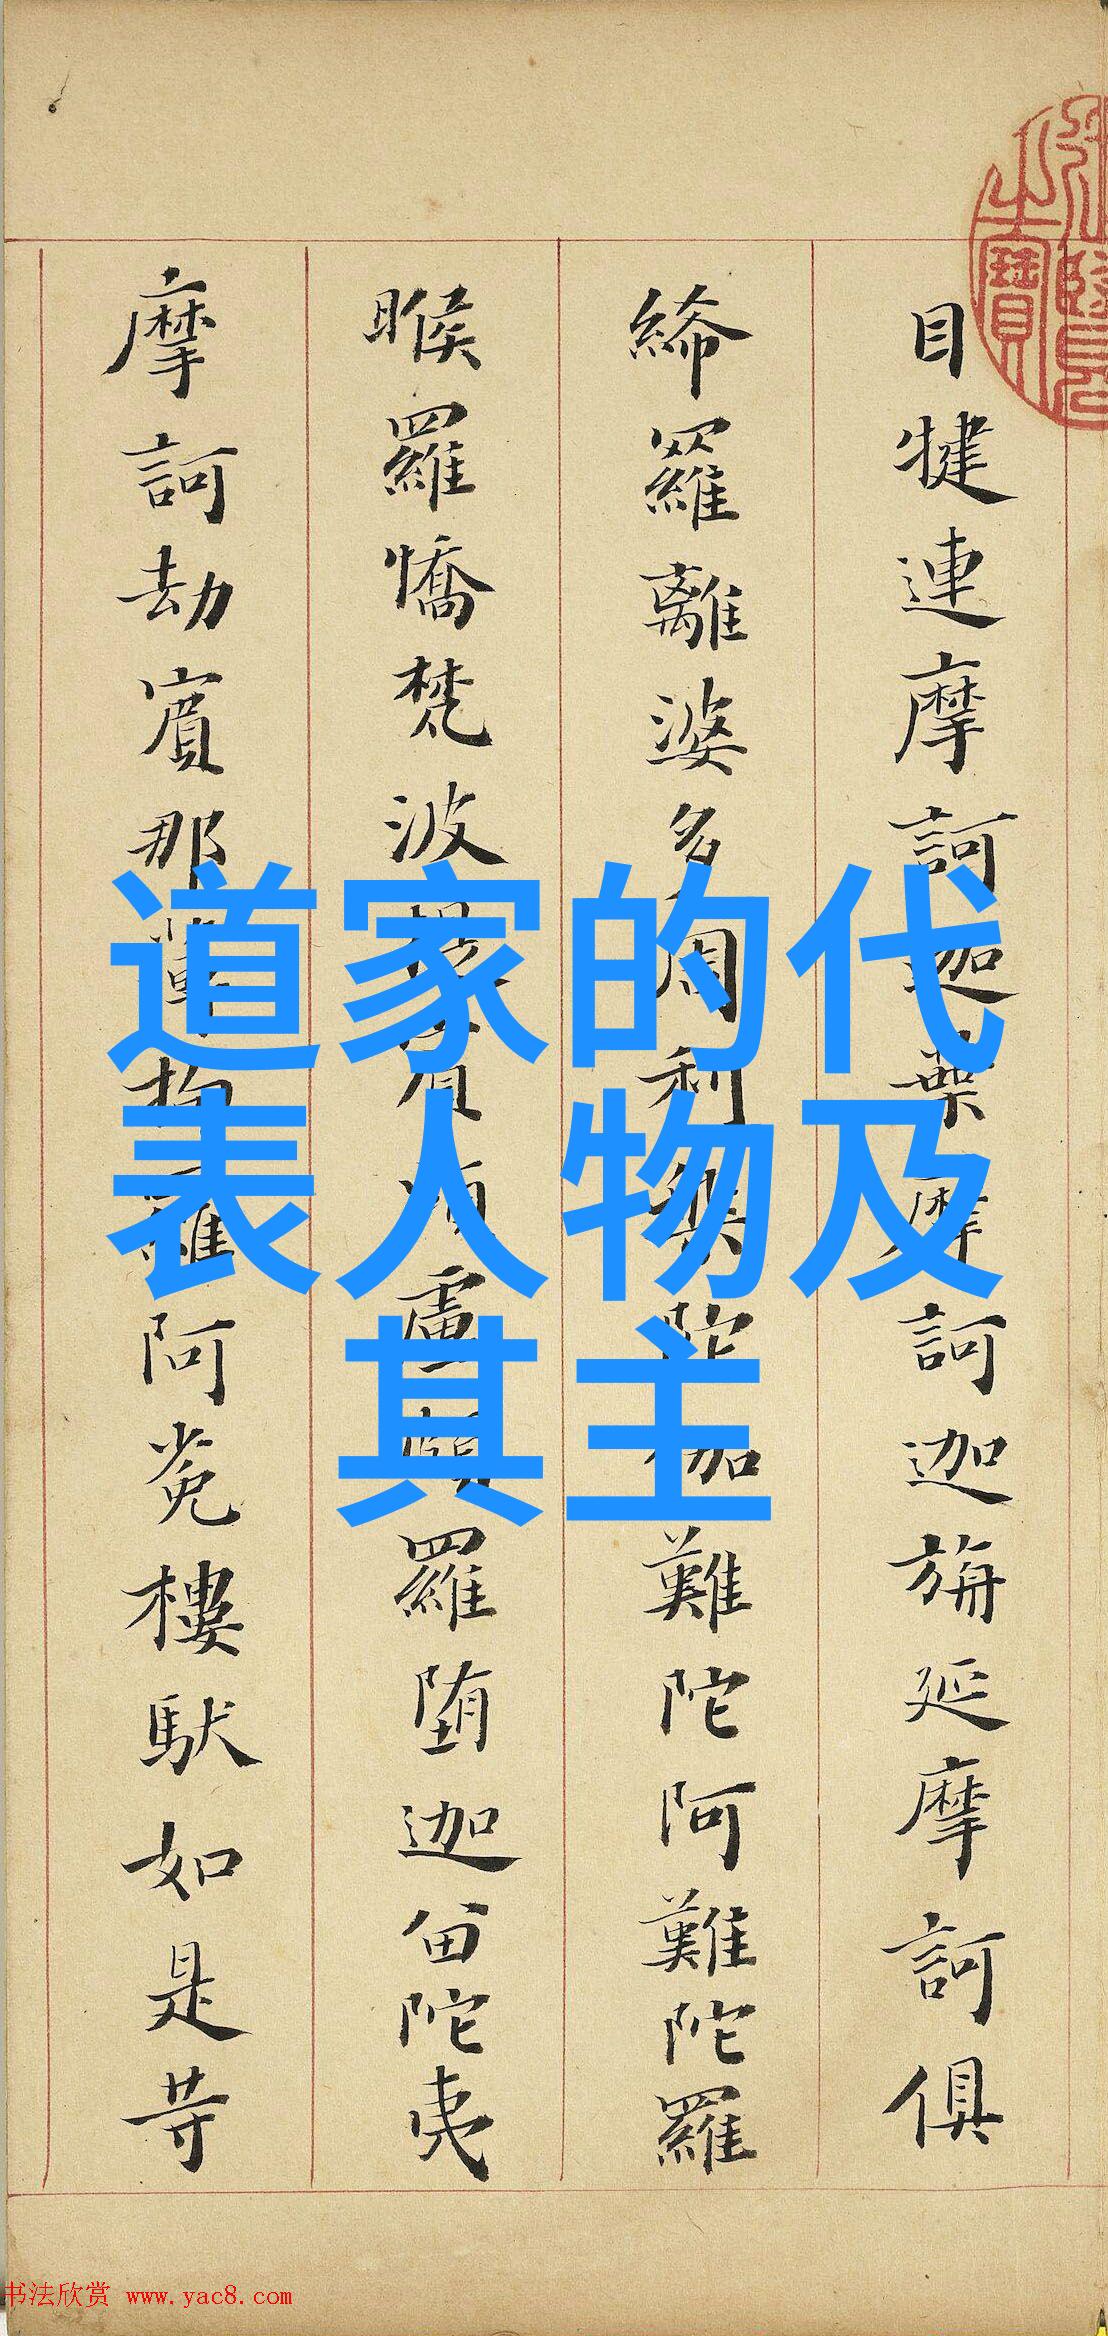 目犍連摩訶迦葉摩訶迦旃延摩訶俱
絺羅離婆多周利槃陀伽難陀阿難陀羅
睺羅憍梵波提賓頭盧頗羅墮迦留陀夷
摩訶劫賓那薄拘羅阿㝹樓馱如是等
道家的代
表人物及
其主
之寶
书法欣赏 www.yac8.com